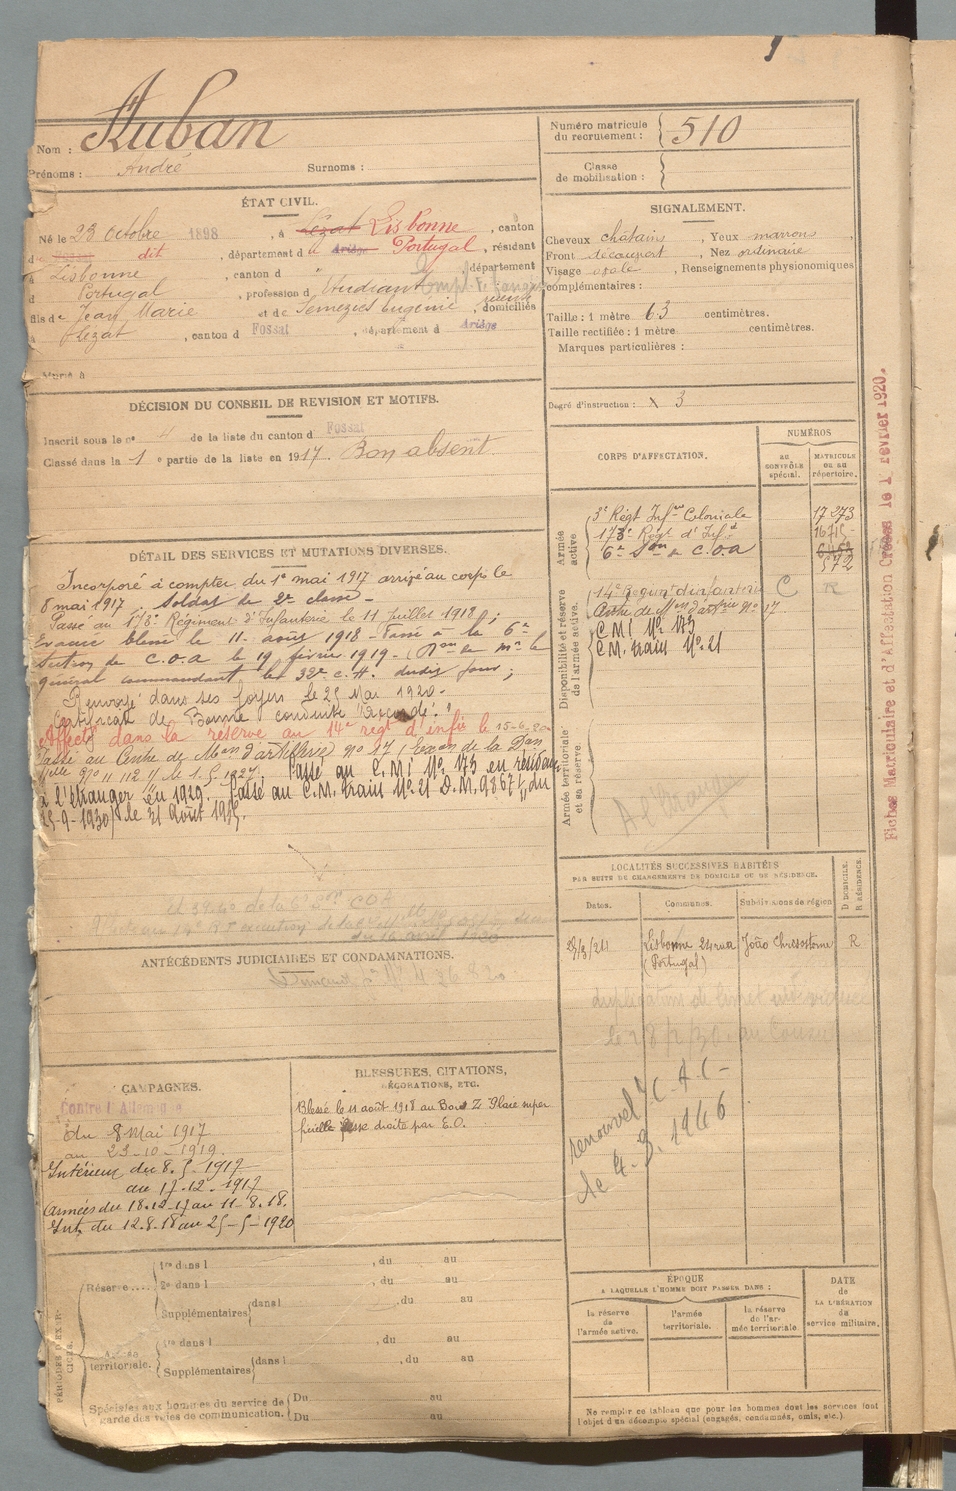 Nom : Auban
Prénoms : André Surnoms :
Numéro matricule du recrutement : 510
Classe de mobilisation :
ÉTAT CIVIL.
Né le 23 Octobre 1898, à Lézat Lisbonne, canton
d Fossat dit, département d Ariège Portugal, résidant
à Lisbonne, canton d ", département
d Portugal, profession d Etudiant
fils de Jean Marie et de Semezies Eugénie, domiciliés
à Lézat, canton d Fossat, département d Ariège
Marié à
SIGNALEMENT.
Cheveux châtains, Yeux marrons,
Front découvert, Nez ordinaire
Visage ovale, Renseignements physionomiques
complémentaires :
Taille : 1 mètre 63 centimètres.
Taille rectifiée : 1 mètre centimètres.
Marques particulières :
Degré d'instruction : 3
DÉCISION DU CONSEIL DE REVISION ET MOTIFS.
Inscrit sous le nº 4 de la liste du canton d Fossat
Classé dans la 1 e partie de la liste en 1917. Bon absent
CORPS D'AFFECTATION.
NUMÉROS
AU CONTRÔLE spécial.
MATRICULE OU AU répertoire.
Armée active.
3e Régt Infie Coloniale 17 273
173e Régt d'Infie
6e Son de C.O.A 572
Disponibilité et réserve de l'armée active.
14e Régiment d'infanterie C R
Centre de Mon d'artie nº 17
C M I Nº 173
C.M. train Nº 21
Armée territoriale et sa réserve.
A l'étranger
DÉTAIL DES SERVICES ET MUTATIONS DIVERSES.
Incorporé à compter du 1e mai 1917 arrivé au corps le
8 mai 1917. Soldat de 2e classe.
Passé au 173e Régiment d'Infanterie le 11 Juillet 1918;
Evacué blessé le 11 août 1918 - Passé à la 6e
Section de C.O.A le 19 février 1919 - (Don de Mr le
général commandant le 32e C.A. dudit jour;
Renvoyé dans ses foyers le 25 Mai 1920.
Certificat de Bonne conduite "Accordé".
Affecté dans la réserve au 14e régt d'infie le 15-6-20
Passé au Centre de Mon d'artillerie nº 17 (Exon de la Don
Mlle nº 11 112 le 1.5.1927. Passé au C.M.I Nº 173 en résidence
à l'étranger en 1929. Passé au C.M. train Nº 21 D.M. 9867 du
25-9-1930 le 31 Août 193
LOCALITÉS SUCCESSIVES HABITÉES
PAR SUITE DE CHANGEMENTS DE DOMICILE OU DE RÉSIDENCE.
Dates. Communes. Subdivisions de région D DOMICILE. R RÉSIDENCE.
Lisbonne 24 rua João Chresostome R
(Portugal)
duplication de livret individuel
renouvelé C.A.C.
le 4.3.1946
ANTÉCÉDENTS JUDICIAIRES ET CONDAMNATIONS.
CAMPAGNES.
Contre l'Allemagne
du 8 Mai 1917
au 23-10-1919.
Intérieur du 8.5.1917
au 17-12-1917
Armées du 18.12.17 au 11-8.18.
Int. du 12.8.18 au 25-5-1920
BLESSURES, CITATIONS, DÉCORATIONS, ETC.
Blessé le 11 août 1918 au Bois Z Plaie super
ficielle fesse droite par E.O.
PÉRIODES D'EXERCICES.
Réserve.....
1re dans l , du au
2e dans l , du au
Supplémentaires dans l , du au
Armée territoriale.
1re dans l , du au
Supplémentaires dans l , du au
Spéciales aux hommes du service de garde des voies de communication.
Du au
Du au
ÉPOQUE
A LAQUELLE L'HOMME DOIT PASSER DANS :
la réserve de l'armée active.
l'armée territoriale.
la réserve de l'armée territoriale
DATE de LA LIBÉRATION du service militaire.
Ne remplir ce tableau que pour les hommes dont les services font
l'objet d'un décompte spécial (engagés, condamnés, omis, etc.)
Fiches Matriculaire et d'Affectation Créées le 1er Février 1920.